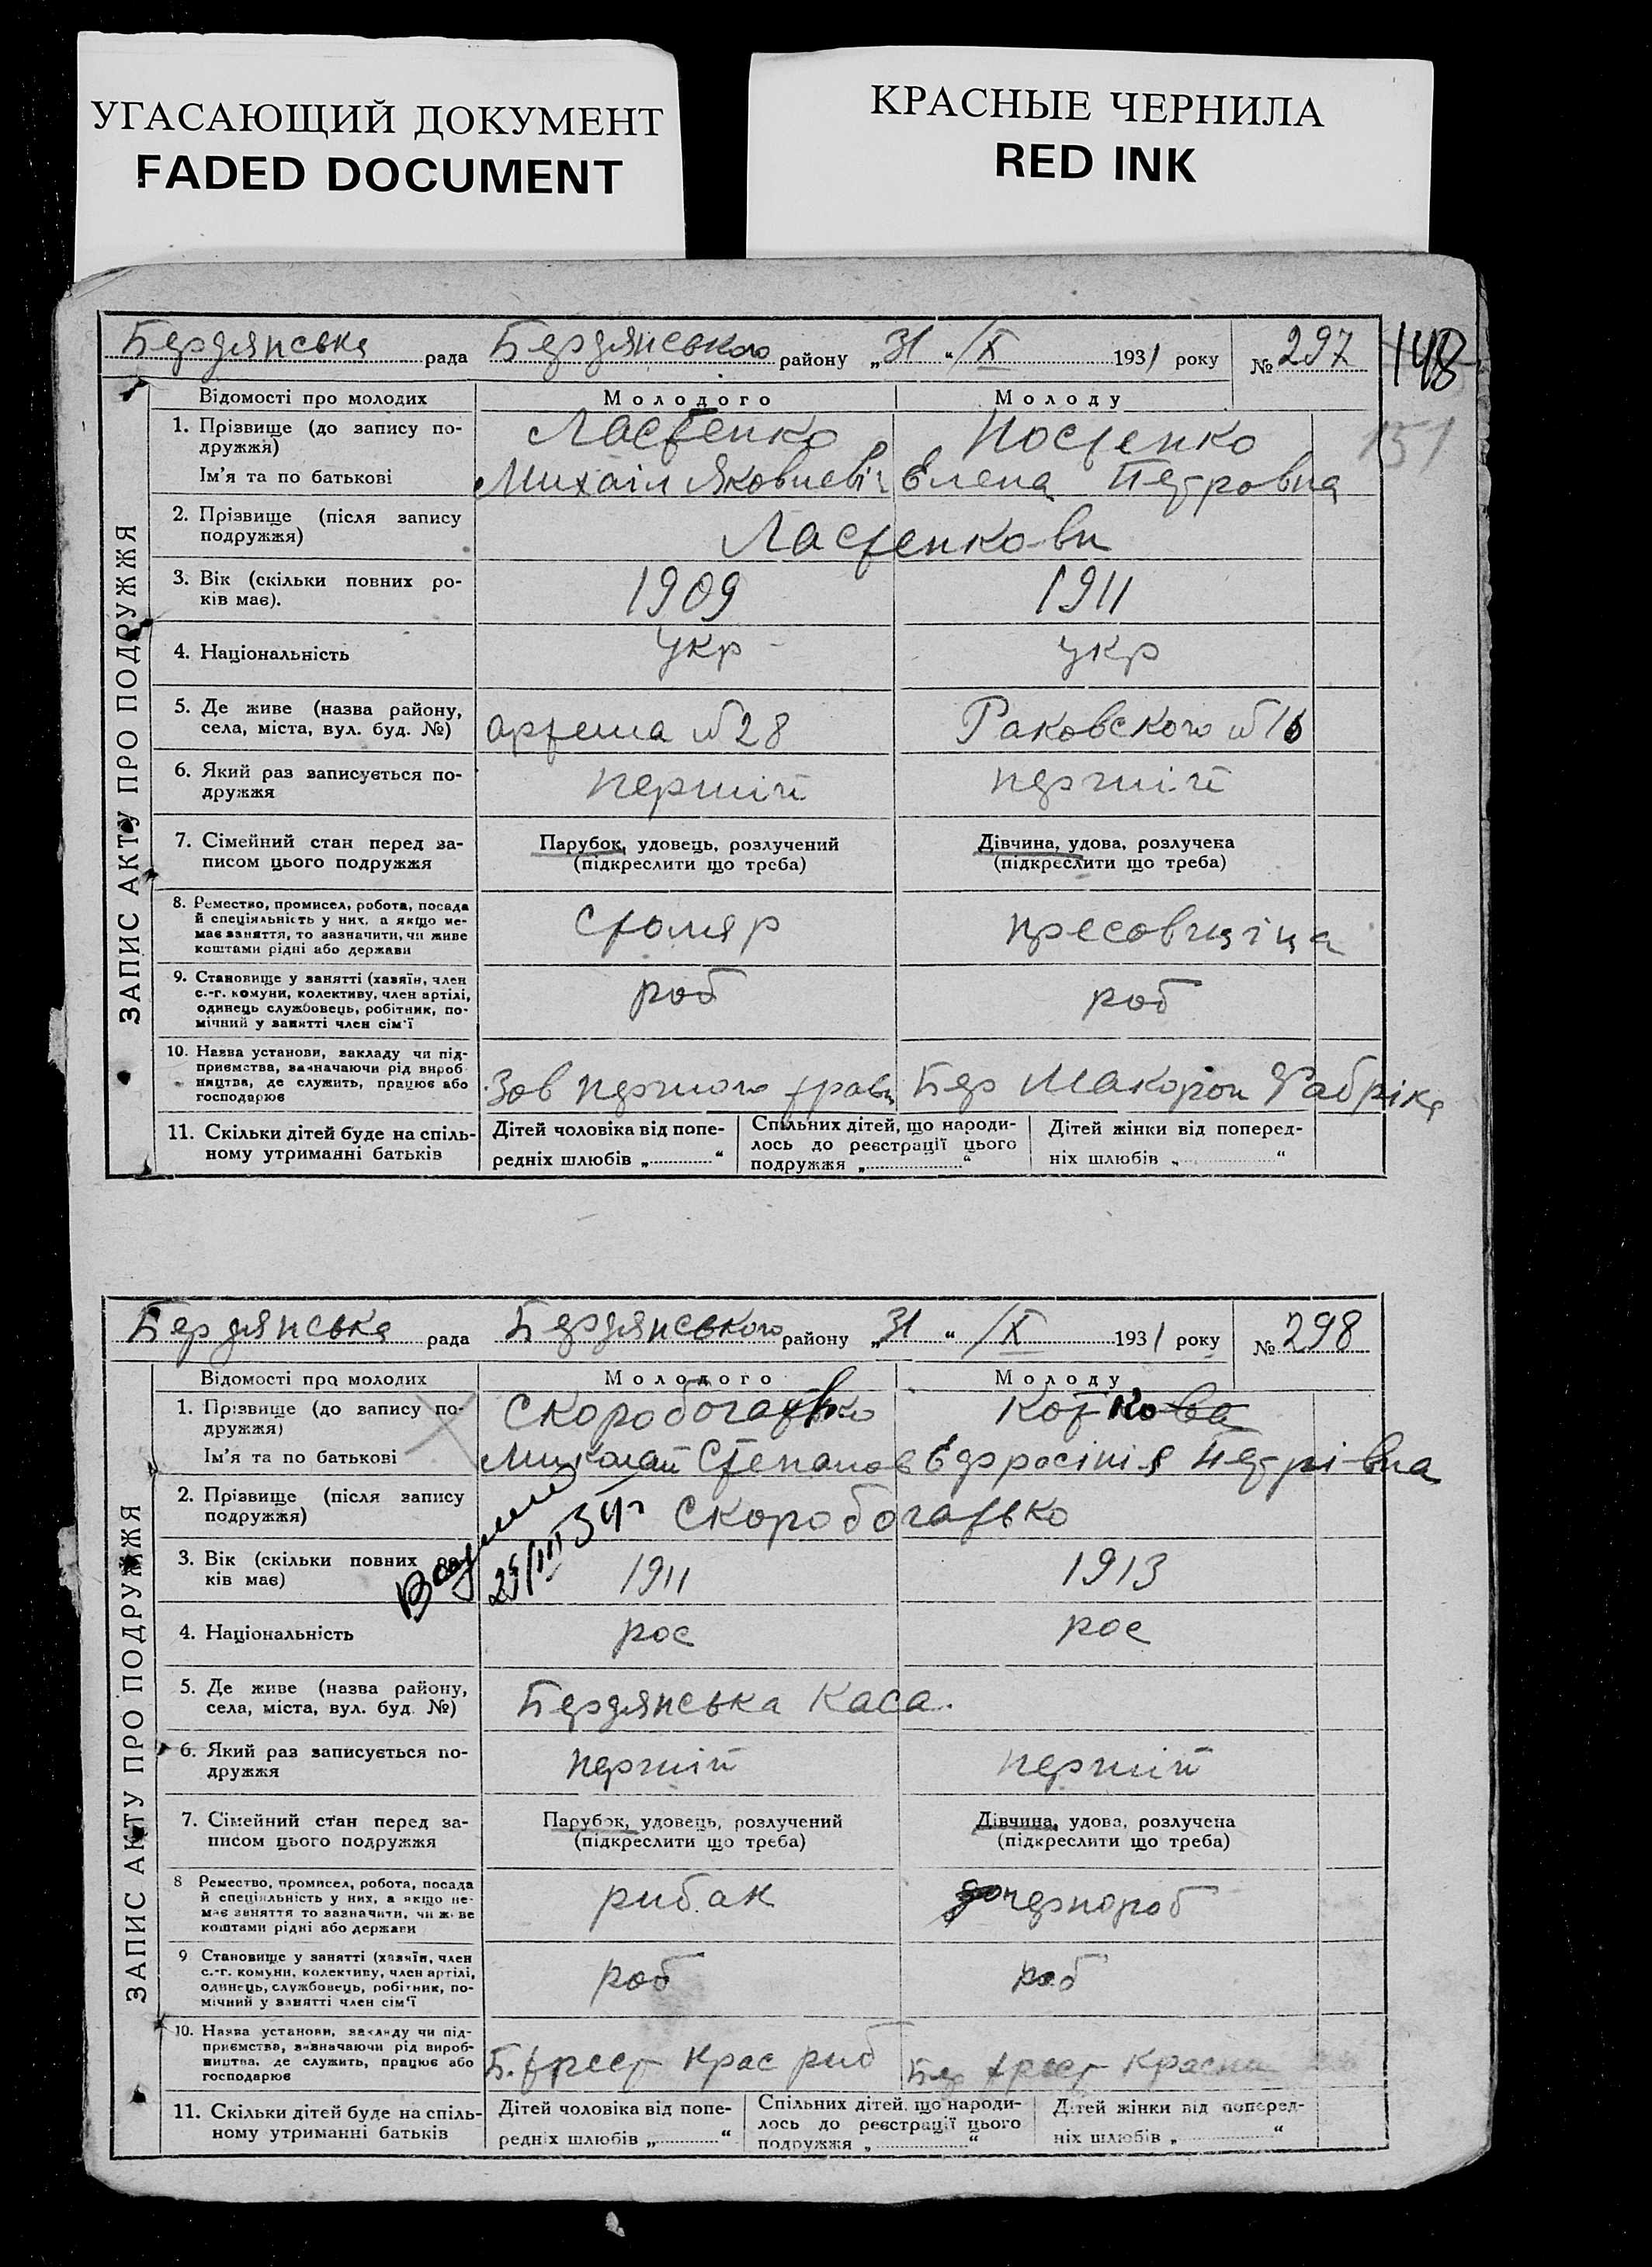 УГАСАЮЩИЙ ДОКУМЕНТ
FADED DOCUMENT
КРАСНЫЕ ЧЕРНИЛА
RED INK
Бердянська рада Бердянського району „31“ /X 1931 року № 297
148
151
ЗАПИС АКТУ ПРО ПОДРУЖЖЯ
Відомості про молодих Молодого Молоду
1. Прізвище (до запису по-
дружжя) Ластенко Костенко
Ім'я та по батькові Михаіл Яковлевіч Елена Петровна
2. Прізвище (після запису
подружжя) Ластенкови
3. Вік (скільки повних ро-
ків має). 1909 1911
4. Національність укр укр
5. Де живе (назва району,
села, міста, вул. буд. №) артема №28 Раковского №16
6. Який раз записується по-
дружжя перший перший
7. Сімейний стан перед за-
писом цього подружжя
Парубок, удовець, розлучений
(підкреслити що треба)
Дівчина, удова, розлучена
(підкреслити що треба)
8. Ремество, промисел, робота, посада
й спеціяльність у них, а якщо не-
має заняття, то зазначити, чи живе
коштами рідні або держави
столяр
9. Становище у занятті (хазяїн, член
с.-г. комуни, колективу, член артілі,
одинець службовець, робітник, по-
мічний у занятті член сім'ї
роб роб
10. Назва установи, закладу чи під-
приємства, зазначаючи рід вироб
ництва, де служить, працює або
господарює
Зов першого травн Бер Макорон Фабріка
11. Скільки дітей буде на спіль-
ному утриманні батьків
Дітей чоловіка від попе-
редніх шлюбів „ “
Спільних дітей, що народи-
лось до реєстрації цього
подружжя „ “
Дітей жінки від поперед-
ніх шлюбів „ “
Бердянська рада Бердянського району „31“ /X 1931 року № 298
ЗАПИС АКТУ ПРО ПОДРУЖЖЯ
Відомості про молодих Молодого Молоду
1. Прізвище (до запису по-
дружжя) Скоробогатько Коткова
Ім'я та по батькові Миколай Степанов Ефросінія Петрівна
2. Прізвище (після запису
подружжя) Скоробогатько
34г
3. Вік (скільки повних ро-
ків має) 1911 1913
4. Національність рос рос
5. Де живе (назва району,
села, міста, вул. буд. №) Бердянська Каса.
6. Який раз записується по-
дружжя перший перший
7. Сімейний стан перед за-
писом цього подружжя
Парубок, удовець, розлучений
(підкреслити що треба)
Дівчина, удова, розлучена
(підкреслити що треба)
8 Ремество, промисел, робота, посада
й спеціяльність у них, а якщо не-
має заняття то зазначити, чи живе
коштами рідні або держави
рибак чернороб
9 Становище у занятті (хазяїн, член
с.-г. комуни, колективу, член артілі,
одинець, службовець, робітник, по-
мічний у занятті член сім'ї
роб роб
10. Назва установи, закладу чи під-
приємства, зазначаючи рід вироб-
ництва, де служить, працює або
господарює
Б. трест Крас риб Бер трест Красна
11. Скільки дітей буде на спіль-
ному утриманні батьків
Дітей чоловіка від попе-
редніх шлюбів „ “
Спільних дітей, що народи-
лось до реєстрації цього
подружжя „ “
Дітей жінки від поперед-
ніх шлюбів „ “